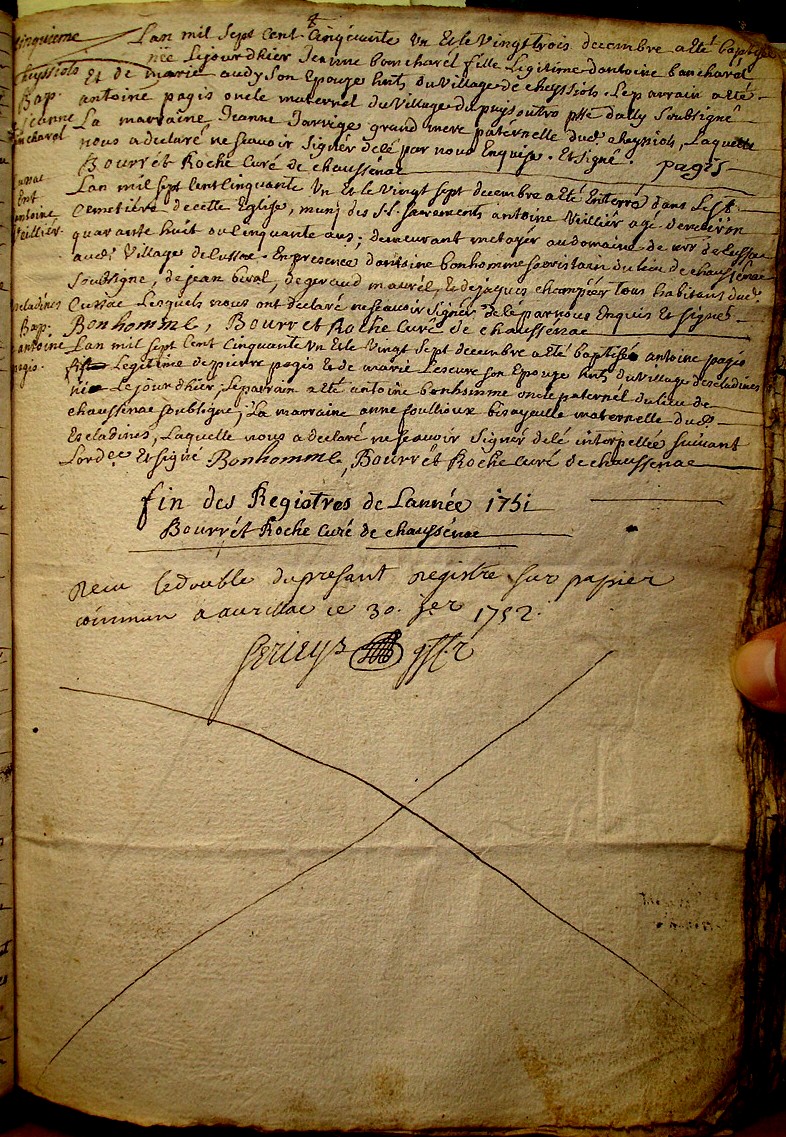 cinquieme
Lan mil Sept Cent Cinquante Un Et le Vingt trois decembre a Eté baptisé
née Lejourdhier Jeanne boncharel fille Legitime dantoine boncharel
cheyssiols
Et de marie audy Son Epouse hnts du Village de cheyssiols. Le parrain a Eté
Bap.
antoine pagis oncle maternel du Village du puisoutro psse dally Soubsigné
Jeanne
La marraine Jeanne Jarrige grand mere paternelle dud. cheyssiols, Laquelle
boncharel
nous a declaré ne scavoir Signer delé par nous Enquise. Et Signé. pagis
Bourrét Roche Curé de chaussénac
Lan mil Sept Cent Cinquante Un Et le Vingt Sept decembre a Eté Enterré dans Le
Ent
Cemetiére de cette Eglise, muni des S.S. Sacrements antoine Veillier agé denviron
antoine
Veillier
quarante huit ou Cinquante ans; demeurant metayer au domaine de mr de
aud. Village de Lussac. En presence dantoine bonhomme Sacristain du Lieu de chaussénac
Soubsigné, de jean beral, de geraud maurel, Et de jacques champeix tous habitans dud.
Lussac Lesquels nous ont declaré ne scavoir Signer, delé par nous Enquis Et Signés
Bonhomme, Bourret Roche Curé de chaussénac
Escladines
Bap.
Lan mil Sept Cent Cinquante Un Et le Vingt Sept decembre a Eté baptisé antoine pagis
antoine
pagis.
fils Legitime de pierre pagis Et de marie Lescure Son Epouse hnts du Village descladines
né Le jourdhier; Le parrain a Eté antoine bonhomme oncle paternel du Lieu de
chaussenac Soubsigné, La marraine anne Soullioux bisayeulle maternelle dud.
Escladines, Laquelle nous a declaré ne scavoir Signer delé interpellée Suivant
Lordce Et Signé Bonhomme, Bourrét Roche Curé de chaussenac
fin des Registres de Lannée 1751
Bourrét Roche Curé de chaussénac
Recu le double du presant registre sur papier
commun a aurillac ce 30. Jer 1752.
Serieys gffr